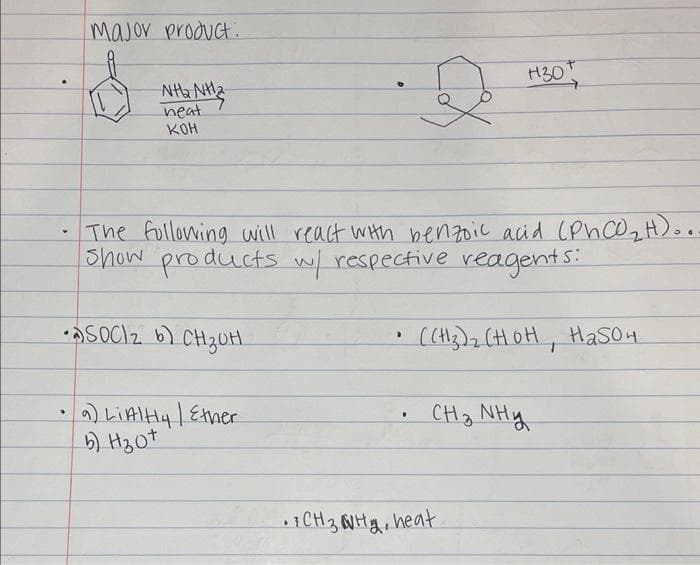 Major product:
NH2NH2
heat
KOH
O O
H3O+
The following will react with benzoic acid (PhCO2H)...
Show products w/ respective reagents:
a) SOCl2 b) CH3OH
(CH3)2CHOH, H2SO4
a) LiAlH4 / Ether
b) H3O+
CH3NH2
CH3NH2, heat